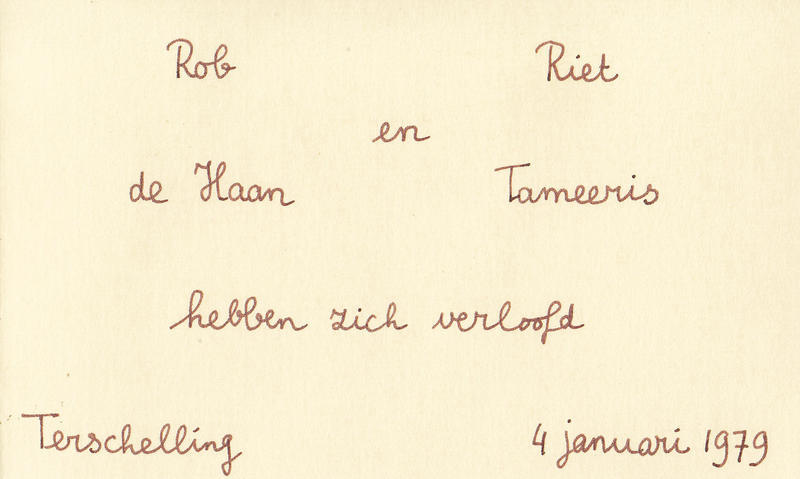 Rob Riet
en
de Haan Tameeris
hebben zich verloofd
Terschelling 4 januari 1979